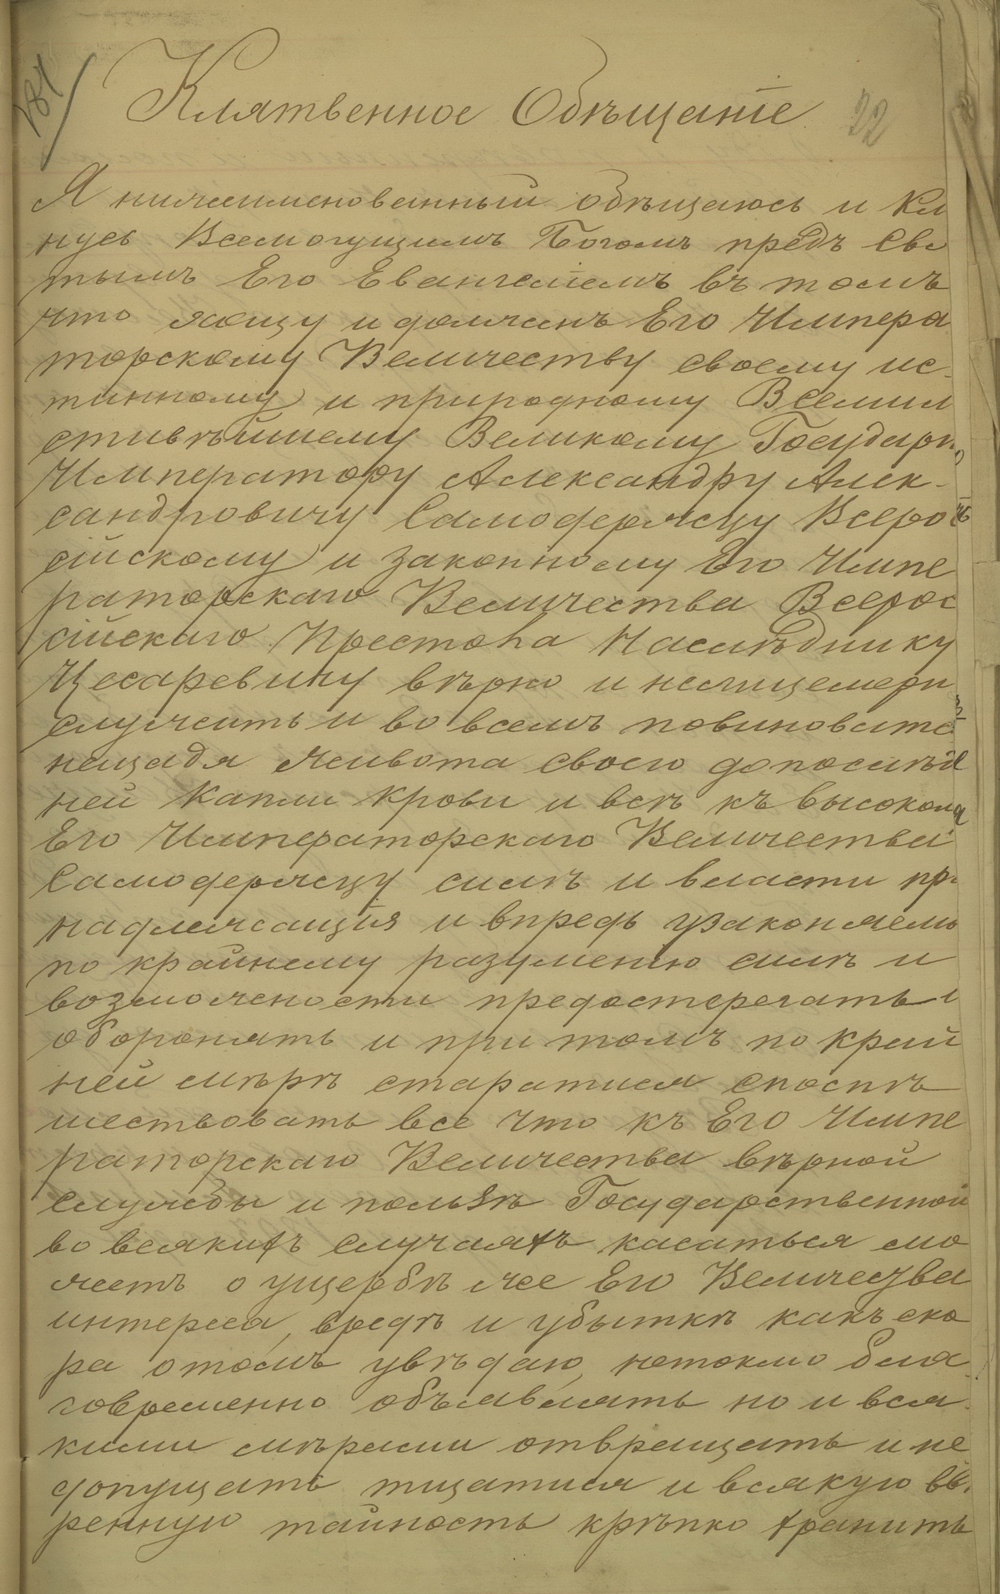 181/
Клятвенное Обѣщанiе
22
Я нижеименованный обѣщаюсь и кля
нусь Всемогущимъ Богомъ предъ Свя
тымъ Его Евангелiемъ въ томъ
что хощу и долженъ Его Импера
торскому Величеству своему ис-
тинному и природному Всемил
стивѣйшему Великому Государю
Императору Александру Алек-
сандровичу Самодержцу Всеро
сiйскому и законному Его Импе
раторскаго Величества Всерос
сiйскаго Престола Наслѣднику
Цесаревичу вѣрно и нелицемерн
служить и во всемъ повиноватс
нещадя живота своего допослѣд
ней капли крови и всѣ къ высоком
Его Императорскаго Величества
Самодержцу силѣ и власти пр
надлежащiя и впредь узаконяемы
по крайнему разумению силѣ и
возможености предостерегать и
оборонять и при томъ по край
ней мѣрѣ старатися споспѣ
шествовать все что къ Его Импе
раторскаго Величества вѣрной
службы и пользѣ Государственной
во всякихъ случаяхъ касаться мо
жетъ о ущербѣ же Его Величезва
интереса, вредѣ и убыткѣ какъ ско
ра отомъ увѣдаю, нетокмо бла
говременно объявлять но и вся
кими мѣрами отвращать и не
допущать тщатися и всякую вв.
ренную тайность крѣпко хранить